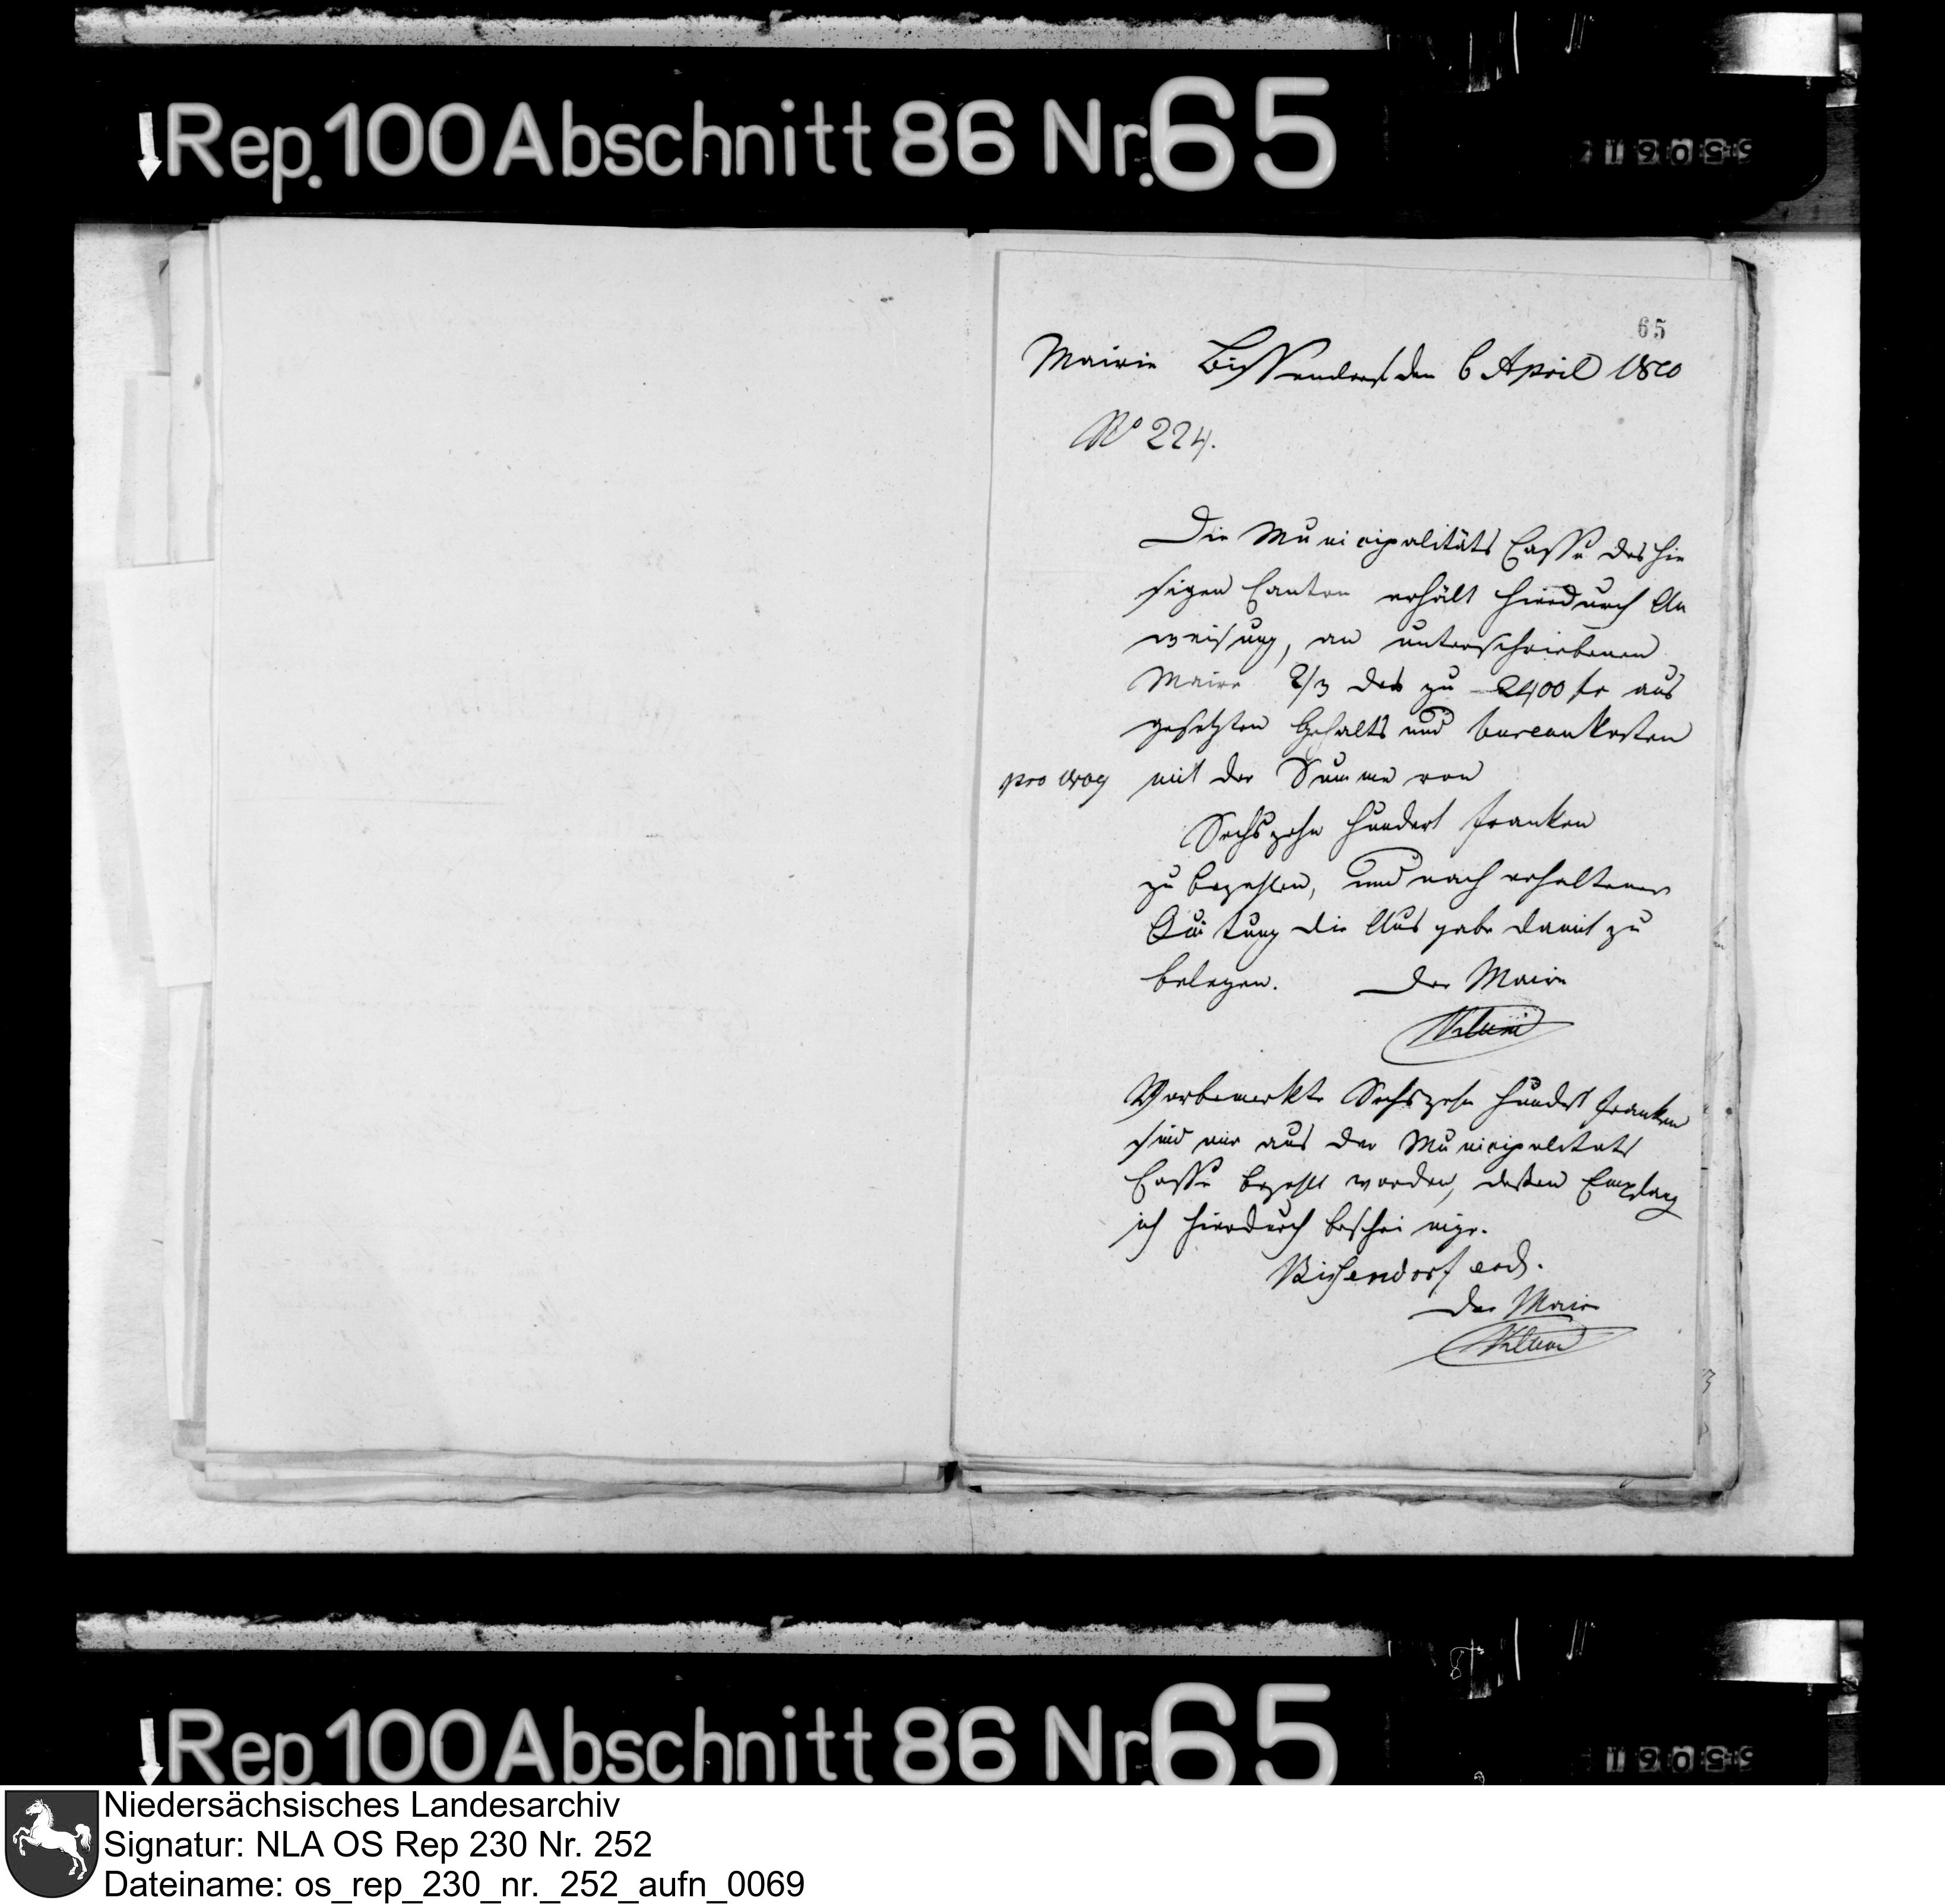 Rep. 100 Abschnitt 86 Nr. 65
65
Mairie Bissendorf den 6 April 1810
No 224.
Die Municipalitäts Casse des hie
sigen Canton erhält hiedurch An
weisung, an unterschriebenen
Maire 2/3 des zu 2400 fr aus
gesetzten Gehalts und bureaukosten
pro 1809 mit der Summe von
Sechszehn hundert Franken
zu bezahlen, und nach erhaltener
Quitung die Ausgabe damit zu
belegen. Der Maire
Vorbemerkte Sechszehn hundert Franken
sind mir aus der Municipalitats
Casse bezahlt worden, deßen Empfang
ich hierdurch bescheinige.
Bissendorf eod.
Der Maire
Rep. 100 Abschnitt 86 Nr. 65
Niedersächsisches Landesarchiv
Signatur: NLA OS Rep 230 Nr. 252
Dateiname: os_rep_230_nr._252_aufn_0069